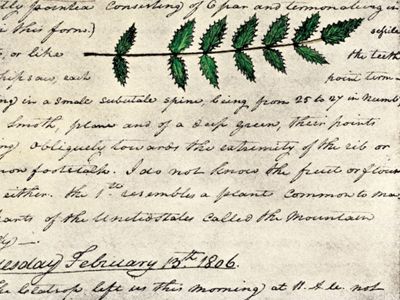 pointed consisting of 6 par and terminating in
in this form.) sessile
s, or like the teeth
hipsaw, each point term-
ng in a small subulate spine, being from 25 to 27 in numb
smoth, plane and of a deep green, their points
ng obliquely towards the extremity of the rib or
mon footstalk. I do not know the fruit or flower
either. the 1st resembles a plant common to ma
parts of the United States called the Mountain
lly —
uesday February 13th 1806.
The Clatsops left us this morning at 11. A.M. not